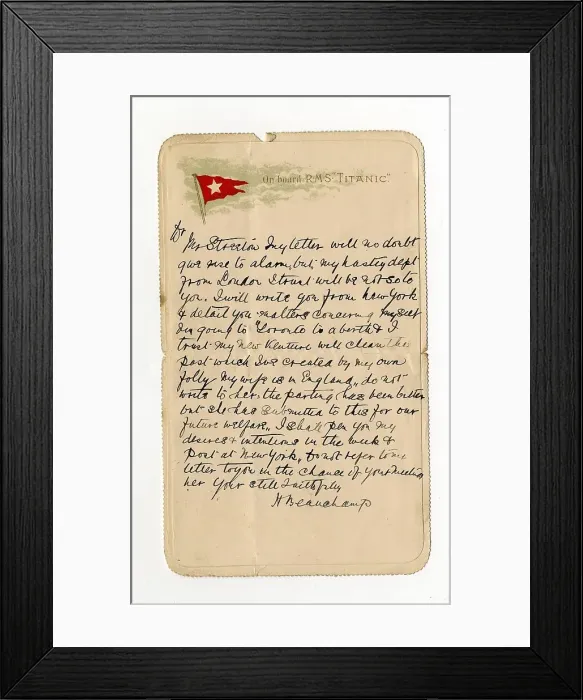 On board R.M.S. "TITANIC"
Mr Streeton My letter will no doubt
give rise to alarm, but my hasty dept
from London I trust will be not so to
you. I will write you from New York
& detail you matters concerning myself
I'm going to Toronto to a berth & I
trust my New Venture will clean this
past which I've created by my own
folly My wife is in England, do not
write to her, the parting has been bitter
but she has submitted to this for our
future welfare, I shall pen you my
desires & intentions in the week &
post at New York, Do not refer to me
letter to you in the chance of your meeting
her Your still faithfully
H Beauchamp